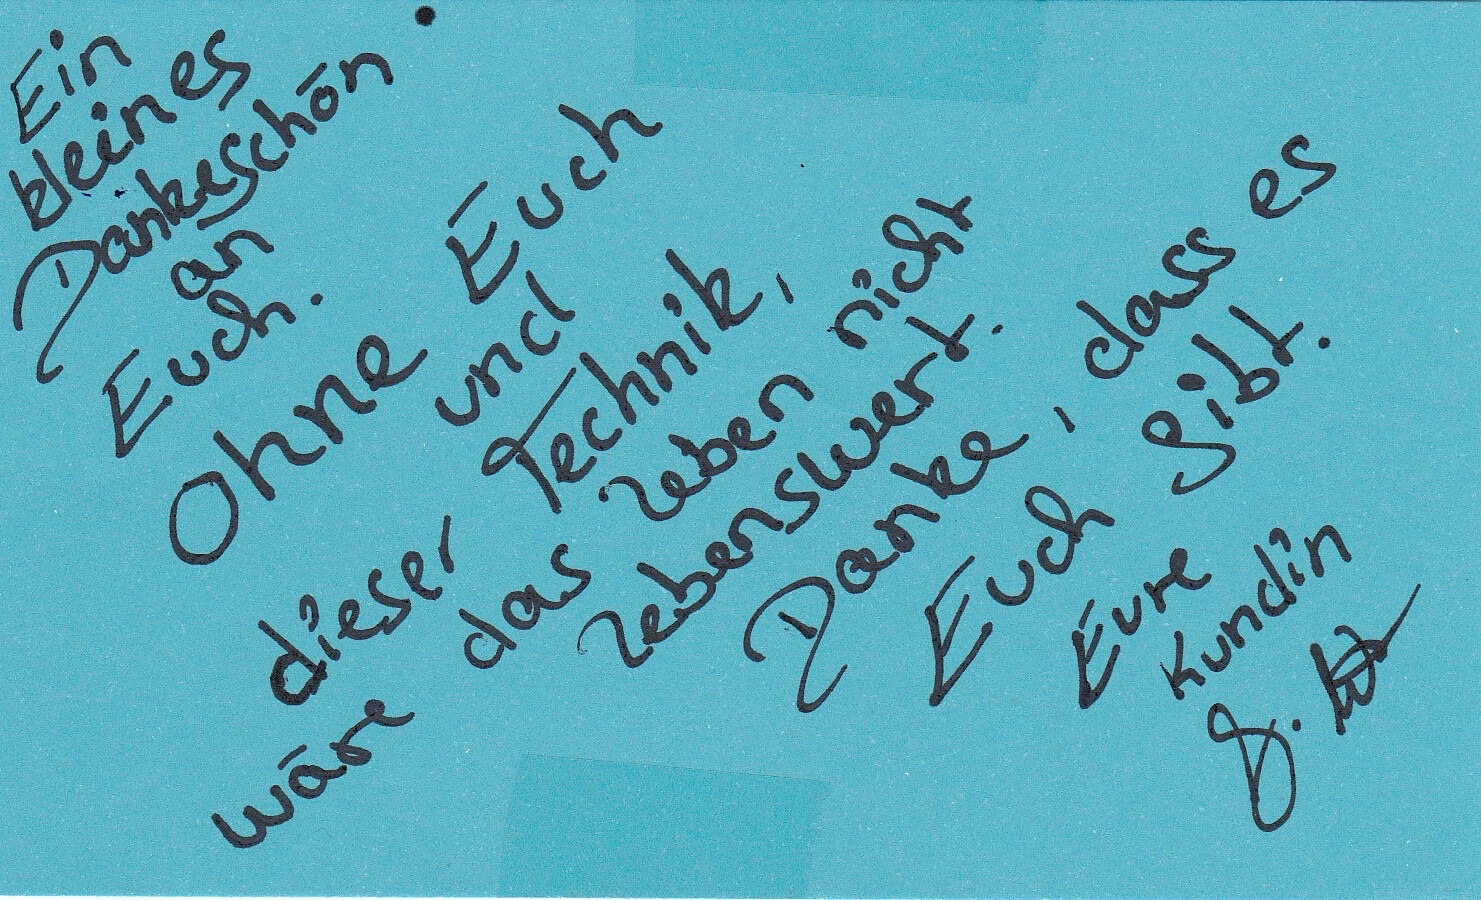 Ein
kleines
Dankeschön
an
Euch.
Ohne Euch
und
dieser Technik,
wäre das Leben nicht
Lebenswert.
Danke, dass es
Euch gibt.
Eure
Kundin